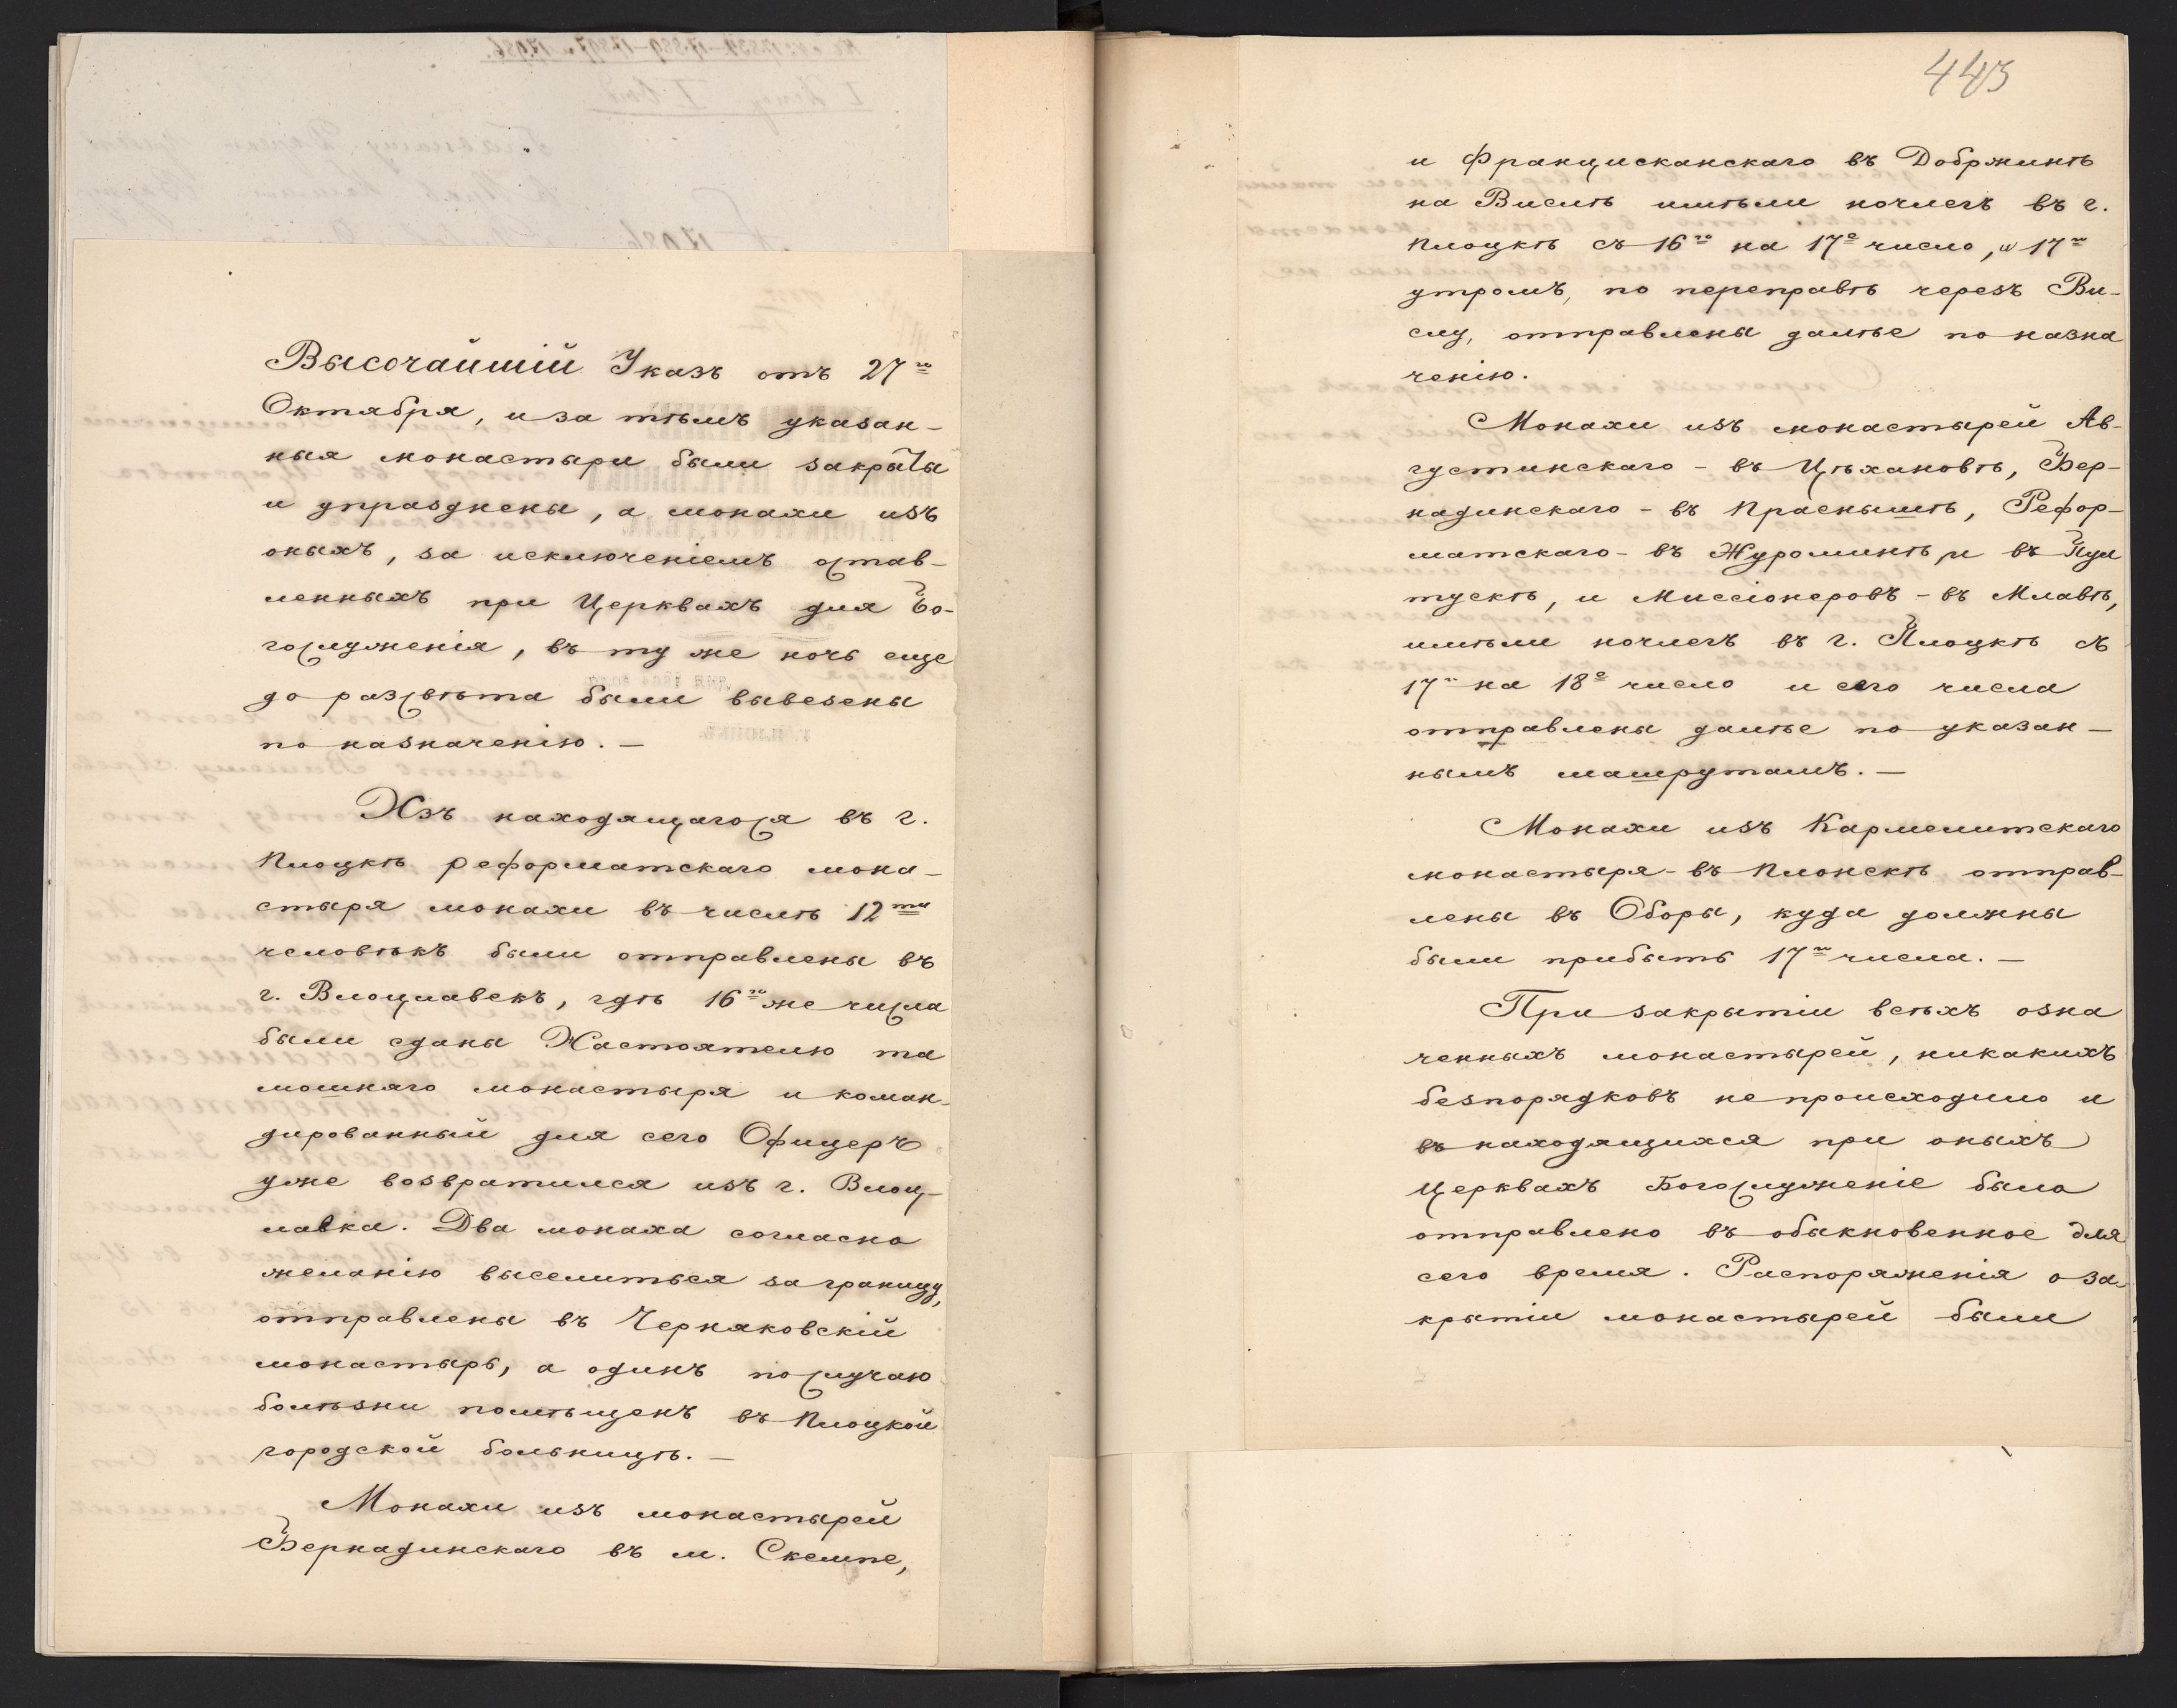 Высочайшій Указъ отъ 27го
Октября, и за тѣмъ указан-
ныя монастыри были закрыты
и упразднены, а монахи изъ
оныхъ, за исключеніемъ остав-
ленныхъ при Церквахъ для Бо-
гослуженія, въ ту же ночь еще
до разсвѣта были вывезены
по назначенію. —
Изъ находящагося въ г.
Плоцкѣ реформатскаго мона-
стыря монахи въ числѣ 12ти
человѣкъ были отправлены въ
г. Влоцлавекъ, гдѣ 16го же числа
были сданы Настоятелю та
мошняго монастыря и коман-
дированный для сего Офицеръ
уже возвратился изъ г. Влоц-
лавка. Два монаха согласно
желанію выселиться за границу,
отправлены въ Черняковскій
монастырь, а одинъ по случаю
болѣзни помѣщенъ въ Плоцкой
городской больницѣ. —
Монахи изъ монастырей
Бернадинскаго въ м. Скемпе,
443
и Францисканскаго въ Добржинѣ
на Вислѣ имѣли ночлегъ въ г.
Плоцкѣ съ 16го на 17е число, и 17го
утромъ, по переправѣ черезъ Ви-
слу, отправлены далѣе по назна
ченію.
Монахи изъ монастырей Ав-
густинскаго - въ Цѣхановѣ, Бер-
надинскаго - въ Праснышѣ, Рефор-
матскаго - въ Журоминѣ, и въ Пул
тускѣ, и Миссіонеровъ - въ Млавѣ,
имѣли ночлегъ въ г. Плоцкѣ съ
17го на 18е число и сего числа
отправлены далѣе по указан-
нымъ машрутамъ. —
Монахи изъ Кармелитскаго
монастыря - въ Плонскѣ отправ-
лены въ Оборы, куда должны
были прибыть 17го числа. —
При закрытіи всѣхъ озна
ченныхъ монастырей, никакихъ
безпорядковъ не происходило и
въ находящихся при оныхъ
Церквахъ Богослуженіе было
отправлено въ обыкновенное для
сего время. Распоряженія о за-
крытіи монастырей были